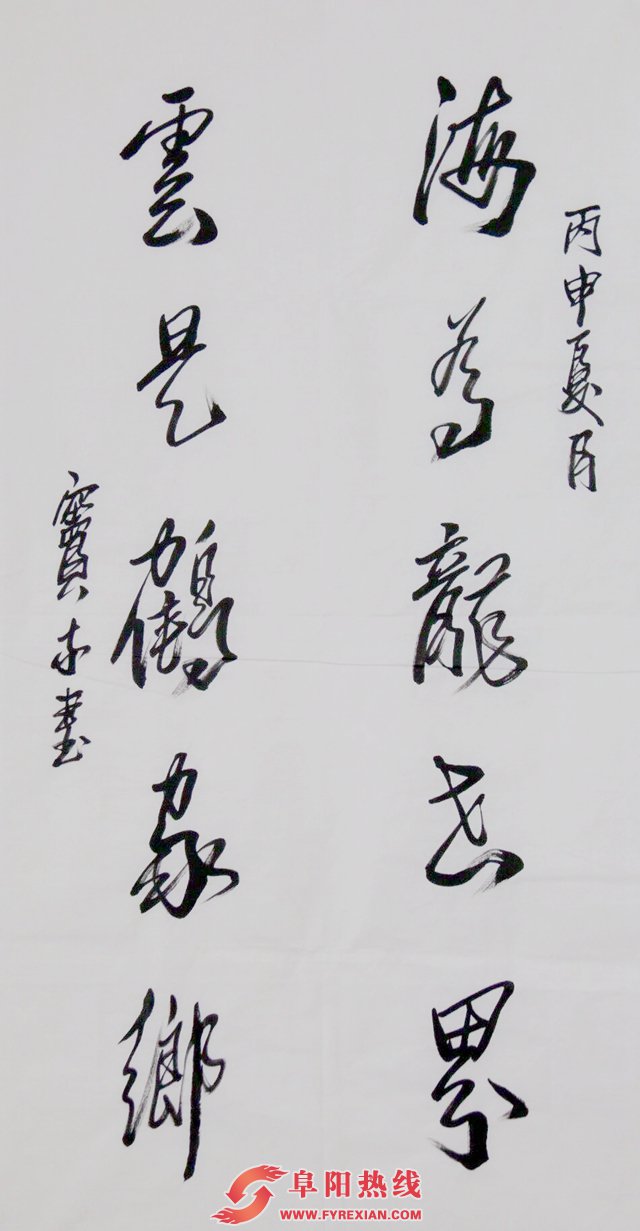 丙申夏月
海為龍世界
雲是鶴家鄉
寶
書
阜阳热线
WWW.FYREXIAN.COM